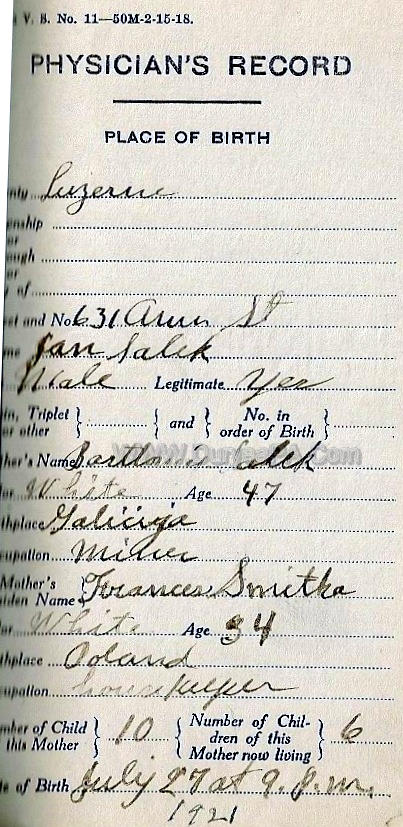 V. S. No. 11—50M-2-15-18.
PHYSICIAN'S RECORD
PLACE OF BIRTH
nty Luzerne
nship
or
ough
or
of
et and No. 631 St
me Jan Salek
Male Legitimate Yes
in, Triplet
or other } { and } No. in order of Birth {
her's Name Salek
or White Age 47
hplace Galicija
upation Miner
Mother's
iden Name } Frances Smitka
or White Age 34
hplace Poland
upation housekeeper
mber of Child
this Mother } 10 { Number of Chil-
dren of this
Mother now living } 6
te of Birth July 27 at 9. p.m.
1921